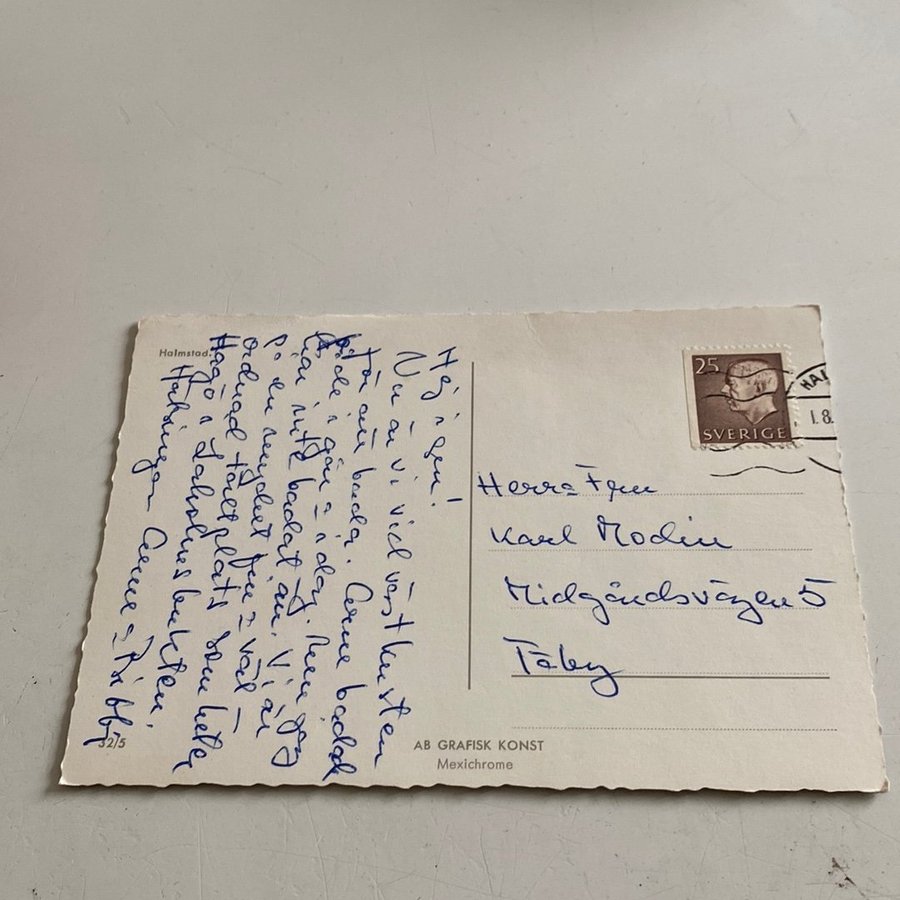 Halmstad.
Hej igen!
Nu är vi vid västkusten
för att bada. Arne badade
både i går = i dag. Men jag
har inte badat än. Vi är
på en mycket fin = väl
ordnad tältplats som heter
Hagö i Laholmsbukten.
Hälsningar Arne =
32/5
25
SVERIGE
HAL
1.8.
Herr = Fru
Karl Modin
Midgårdsvägen 5
Täby
AB GRAFISK KONST
Mexichrome